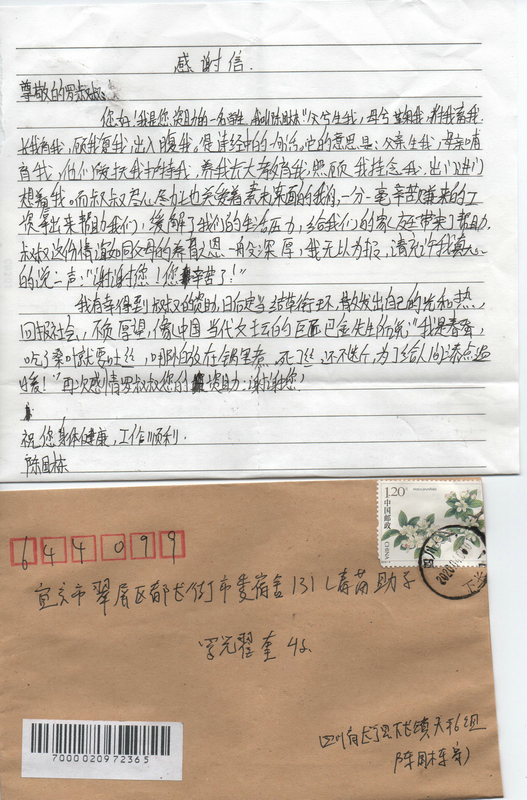 感谢信
尊敬的罗叔叔:
您好!我是您资助的一名学生,我叫陈国栋"父兮生我,母兮鞠我,抚我畜我,
长我育我,顾我复我,出入腹我。"是诗经中的一句话。它的意思是:父亲生我,母亲哺
育我,他们爱抚我护持我,养我长大教育我,照顾我挂念我,出门进门
想着我。而叔叔尽心尽力也关爱着素未谋面的我们,一分一毫辛苦赚来的工
资拿出来帮助我们,缓解了我们的生活压力,给我们的家庭带来了帮助。
叔叔这份情谊如同父母的养育之恩一般深厚,我无以为报,请允许我真心
的说一声:"谢谢您!您辛苦了!"
我有幸得到叔叔的资助,日后定当结草衔环,散发出自己的光和热,
回报社会,不负厚望,像中国当代文坛的巨匠巴金先生所说"我是春蚕,
吃了桑叶就要吐丝,哪怕放在锅里煮,死了丝还不断,为了给人间添点温
暖!"再次感谢罗叔叔您的资助:谢谢您!
祝您身体健康,工作顺利.
陈国栋
1.20元
中国邮政
CHINA
644099
宜宾市翠屏区都长街市委宿舍131
学兄翟奎收
四川省长宁县下长镇
陈国栋寄
7000020972365